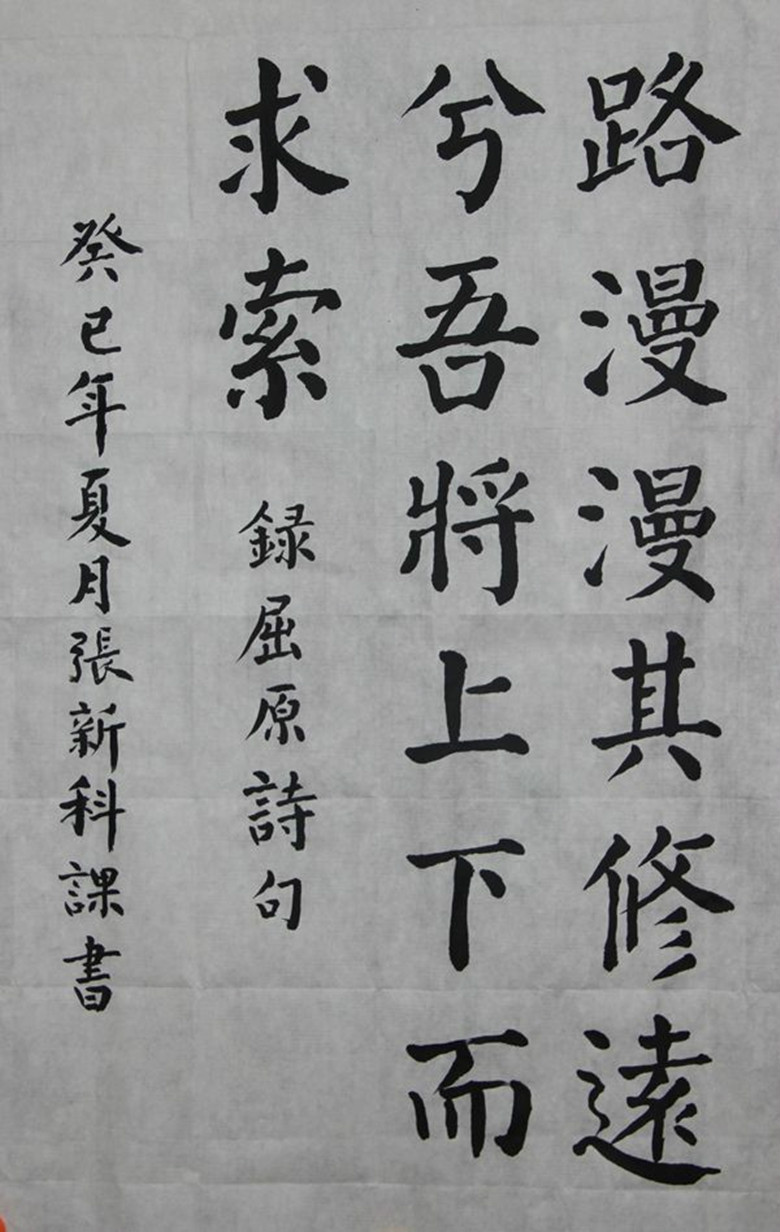 路漫漫其修遠
兮吾將上下而
求索
録屈原詩句
癸巳年夏月張新科課書